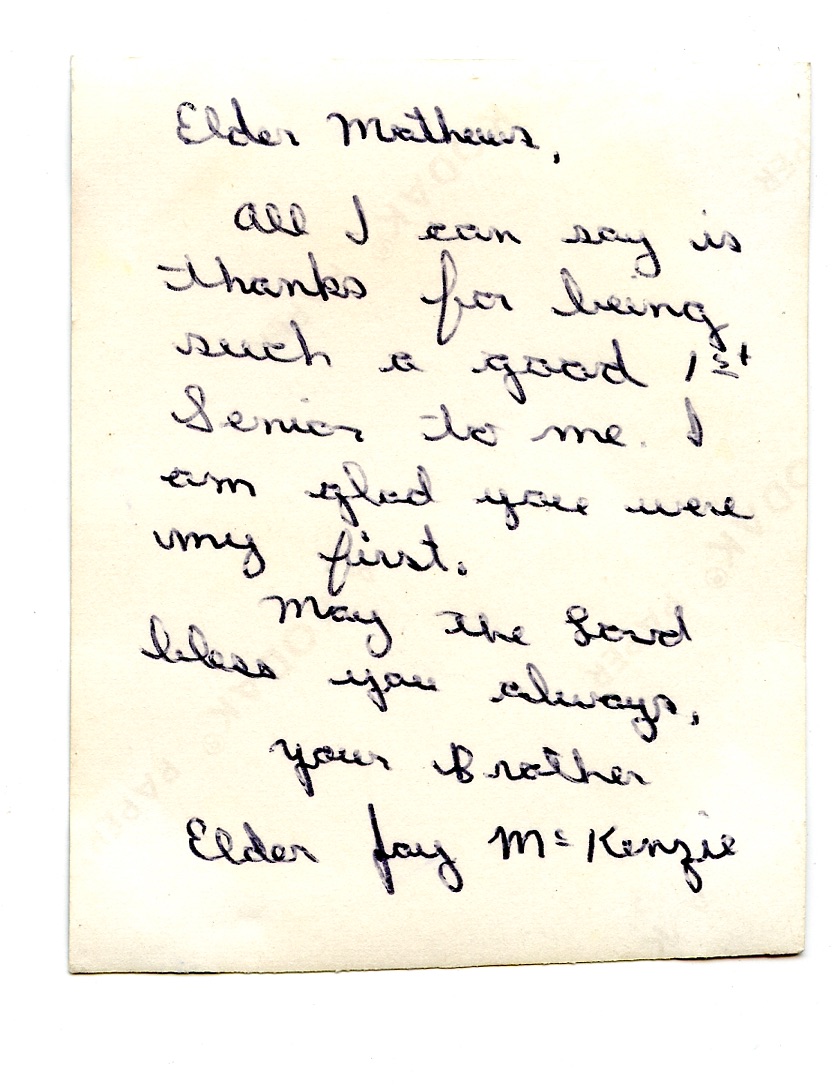 Elder Mathews,
All I can say is
thanks for being
such a good 1st
Senior to me. I
am glad you were
my first.
May the Lord
bless you always,
your Brother
Elder Jay McKenzie